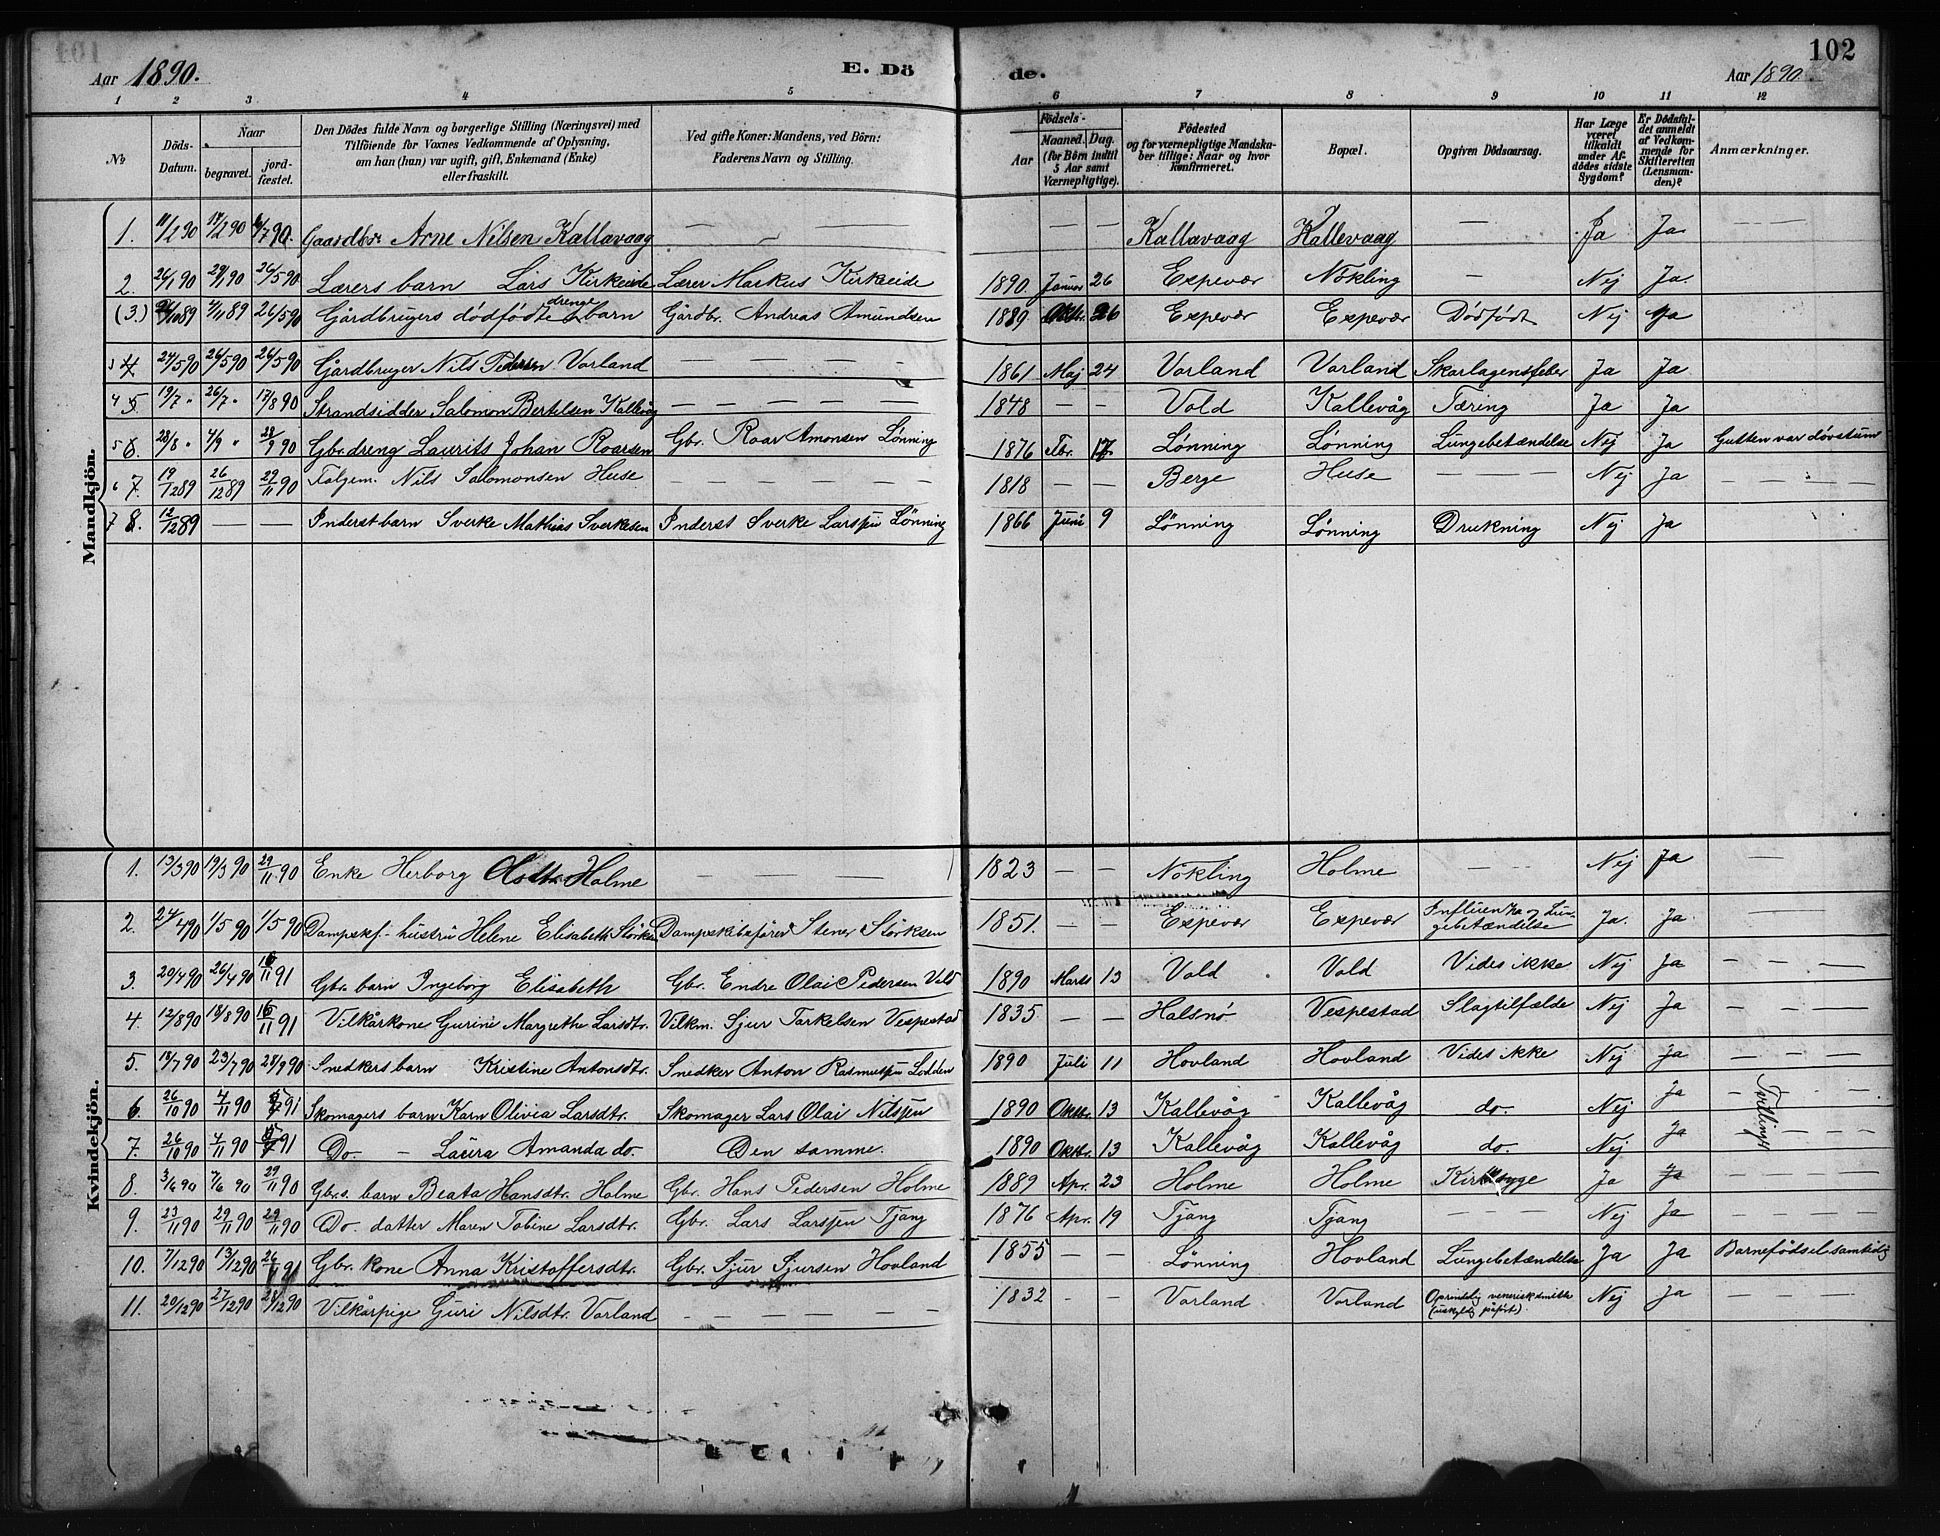 Aar 1890. E. Dö de. Aar 1890. 102
1 2 3 4 5 6 7 8 9 10 11 12
No
Döds-Datum.
Naar begravet. jordfæstet.
Den Dödes fulde Navn og borgerlige Stilling (Næringsvei) med Tilföiende for Voxnes Vedkommende af Oplysning, om han (hun) var ugift, gift, Enkemand (Enke) eller fraskilt.
Ved gifte Koner: Mandens, ved Börn: Faderens Navn og Stilling.
Födsels-
Aar Maaned. Dag. (for Börn indtil 5 Aar samt Værnepligtige).
Födested og for værnepligtige Mandskaber tillige: Naar og hvor Konfirmeret.
Bopæl.
Opgiven Dödsaarsag.
Har Læge været tilkaldt under Afdödes sidste Sygdom?
Er Dödsfaldet anmeldt af Vedkommende for Skifteretten (Lensmanden)?
Anmærkninger.
Mandkjön.
1. 11/2 90 17/2 90 6/7 90. Gaardbr. Arne Nilsen Kallavaag — — — — — Kallavaag Kallevaag — Ja Ja —
2. 26/1 90 29/1 90 26/5 90 Lærers barn Lars Kirkeide Lærer Markus Kirkeide 1890. Januar 26 Espevær Nökling — Nej Ja. —
(3.) 26/10 89 4/11 89 26/5 90 Gårdbrugers dödfödte drengebarn Gårdbr. Andreas Amundsen 1889 Oktbr. 26 Espevær Espevær Dödfödt Nej Ja —
3 4 24/5 90 26/5 90 26/5 90 Gårdbruger Nils Pedersen Vorland — — — 1861 Maj 24 Vorland Vorland Skarlagensfeber Ja Ja
4 5 19/7 " 26/7 " 17/8 90 Strandsidder Salomon Bertelsen Kallevåg — — — — — 1848 — — Vold Kallevåg Tæring Ja Ja
5 6. 28/8 " 4/9 " 28/9 90 Gbr. dreng Laurits Johan Roarsen Gbr. Roar Amonsen Lönning 1876 Febr. 17. Lönning Lönning Lungebetændelse Nej Ja Gutten var dövstum
6 7. 19/12 89 26/12 89 29/11 90 Fölgem. Nils Salomonsen Huse — — — — — 1818 — — Berge Huse — — Nej Ja — — — —
7 8. 12/12 89 — — Inderst barn Sverke Mathias Sverkesen Inderst Sverke Larssen Lönning 1866 Juni 9 Lönning Lönning Drukning Nej Ja
Kvindekjön.
1. 13/3 90 19/3 90 29/11 90 Enke Herborg Olsdtr. Holme — — — 1823 — — Nökling Holme — — Nej Ja —
2. 24/4 90 1/5 90 1/5 90 Dampskf.-hustru Helene Elisabeth Störksen Dampskibsförer Stener Störksen 1851. — — Espevær Espevær Influenza og Lungebetændelse Ja. Ja —
3. 20/4 90 26/4 90 16/11 91 Gbr. barn Ingeborg Elisabeth Gbr. Endre Olai Pedersen Vold 1890 Marts 13 Vold Vold Vides ikke Nej Ja — — —
4. 12/8 90 18/8 90 16/11 91 Vilkårkone Gurine Margrethe Larsdtr. Vilkm. Sjur Tarkelsen Vespestad 1835 — — Halsnö Vespestad Slagtilfælde Nej Ja — —
5. 18/7 90 23/7 90 28/9 90 Snedkers barn Kristine Antonsdtr. Snedker Anton Rasmussen Lodden 1890 Juli 11 Hovland Hovland Vides ikke Nej Ja — — — —
6. 26/10 90 4/11 90 91 Skomagers barn Karn Olivia Larsdtr. Skomager Lars Olai Nilssen 1890 Oktbr. 13 Kallevåg Kallevåg do. Nej Ja — Tvillinger
7. 26/10 90 4/11 90 91 Do. — Laura Amanda do. Den samme. 1890 Oktbr. 13 Kallevåg Kallevåg do. Nej Ja
8. 3/6 90 7/6 90 29/11 90 Gbrs. barn Beata Hansdtr. Holme Gbr. Hans Pedersen Holme 1889 Apr. 23 Holme Holme Ja Ja — — — —
9. 23/11 90 29/11 90 29/11 90 Do. datter Maren Tobine Larsdtr. Gbr. Lars Larssen Tjong 1876 Apr. 19 Tjong Tjong — — — Nej Ja — — —
10. 7/12 90 13/12 90 26/ 91 Gbr. kone Anna Kristoffersdtr. Gbr. Sjur Sjursen Hovland 1855 — — Lönning Hovland Lungebetændelse Ja Ja Barnefödsel samtidig
11. 20/12 90 27/12 90 28/12 90 Vilkårpige Guri Nilsdtr. Vorland — — — — — 1832 — — Vorland Vorland Oprindelig venerisk smitte (uskyldig påfört). Nej Ja — — —